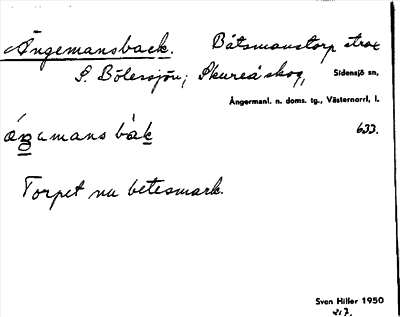 Ångemansback. Båtsmanstorp strax
S. Bölessjön, Skureå skog, Sidensjö sn,
Ångermanl. n. doms. tg., Västernorrl, l.
633.
Torpet nu betesmark.
Sven Hiller 1950
217.